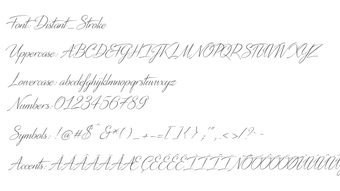 Font: Distant_Stroke
Uppercase: ABCDEFGHIJKLMNOPQRSTUVWXYZ
Lowercase: abcdefghijklmnopqrstuvwxyz
Numbers: 0123456789
Symbols: !@#$^&*()_+-=[]{};",.<>/?:-
Accents: AAAAAAÆÇEEEEIIIINOOOOOØUUUUY